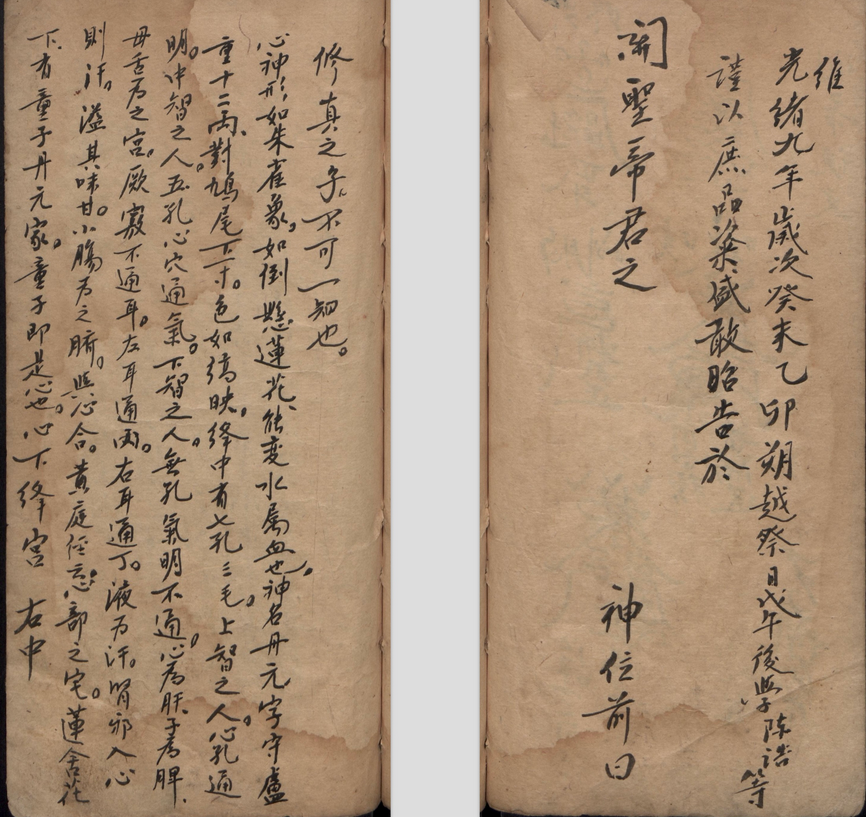 維
光緒九年歲次癸未乙卯朔越祭日戊午後學陈誥等
謹以庶品粢盛敢昭告於
關聖帝君之 神位前曰
修真之子。不可一知也。
心神形如朱雀象。如倒懸蓮花、能变水属血也。神名丹元、字守盧
重十二兩、對鳩尾下一寸。色如縞映。絳中有七孔三毛。上智之人。心孔通
明。中智之人。五孔心穴通氣。下智之人。無孔氣明不通。心為肝子為脾、
毋舌为之宮。厥竅不通耳。左耳通丙。右耳通丁。液为汗。腎邪入心
則汗。溢其味甘。小腸为之腑。與心合。黄庭径云。心部之宅。蓮含花
下。有童子丹元家。童子即是心也。心下絳宮 右中